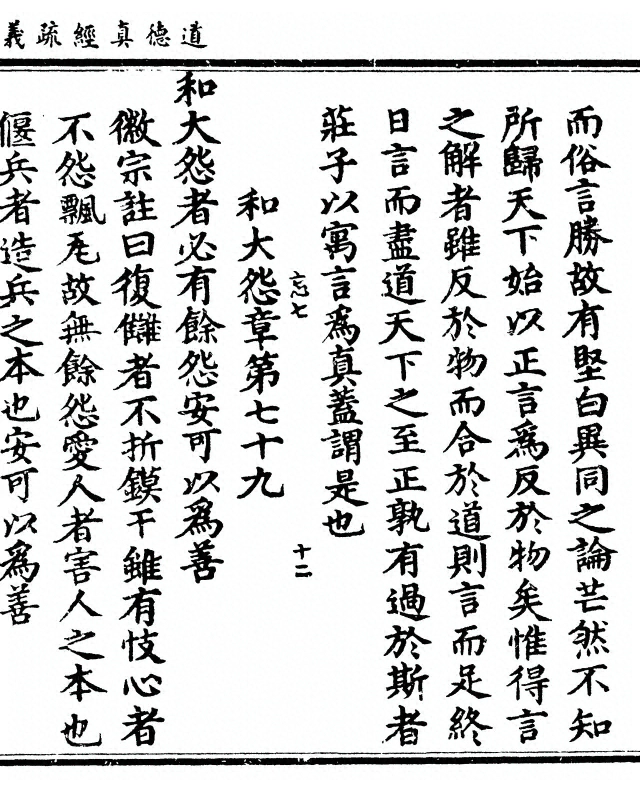 道德真經疏義
而俗言勝故有堅白異同之論芒然不知
所歸天下始以正言為反於物矣惟得言
之解者雖反於物而合於道則言而足終
日言而盡道天下之至正孰有過於斯者
莊子以寓言爲真蓋謂是也
忘七
十二
和大怨章第七十九
和大怨者必有餘怨安可以爲善
徽宗註曰復讎者不折鏌干雖有忮心者
不怨飄瓦故無餘怨愛人者害人之本也
偃兵者造兵之本也安可以爲善